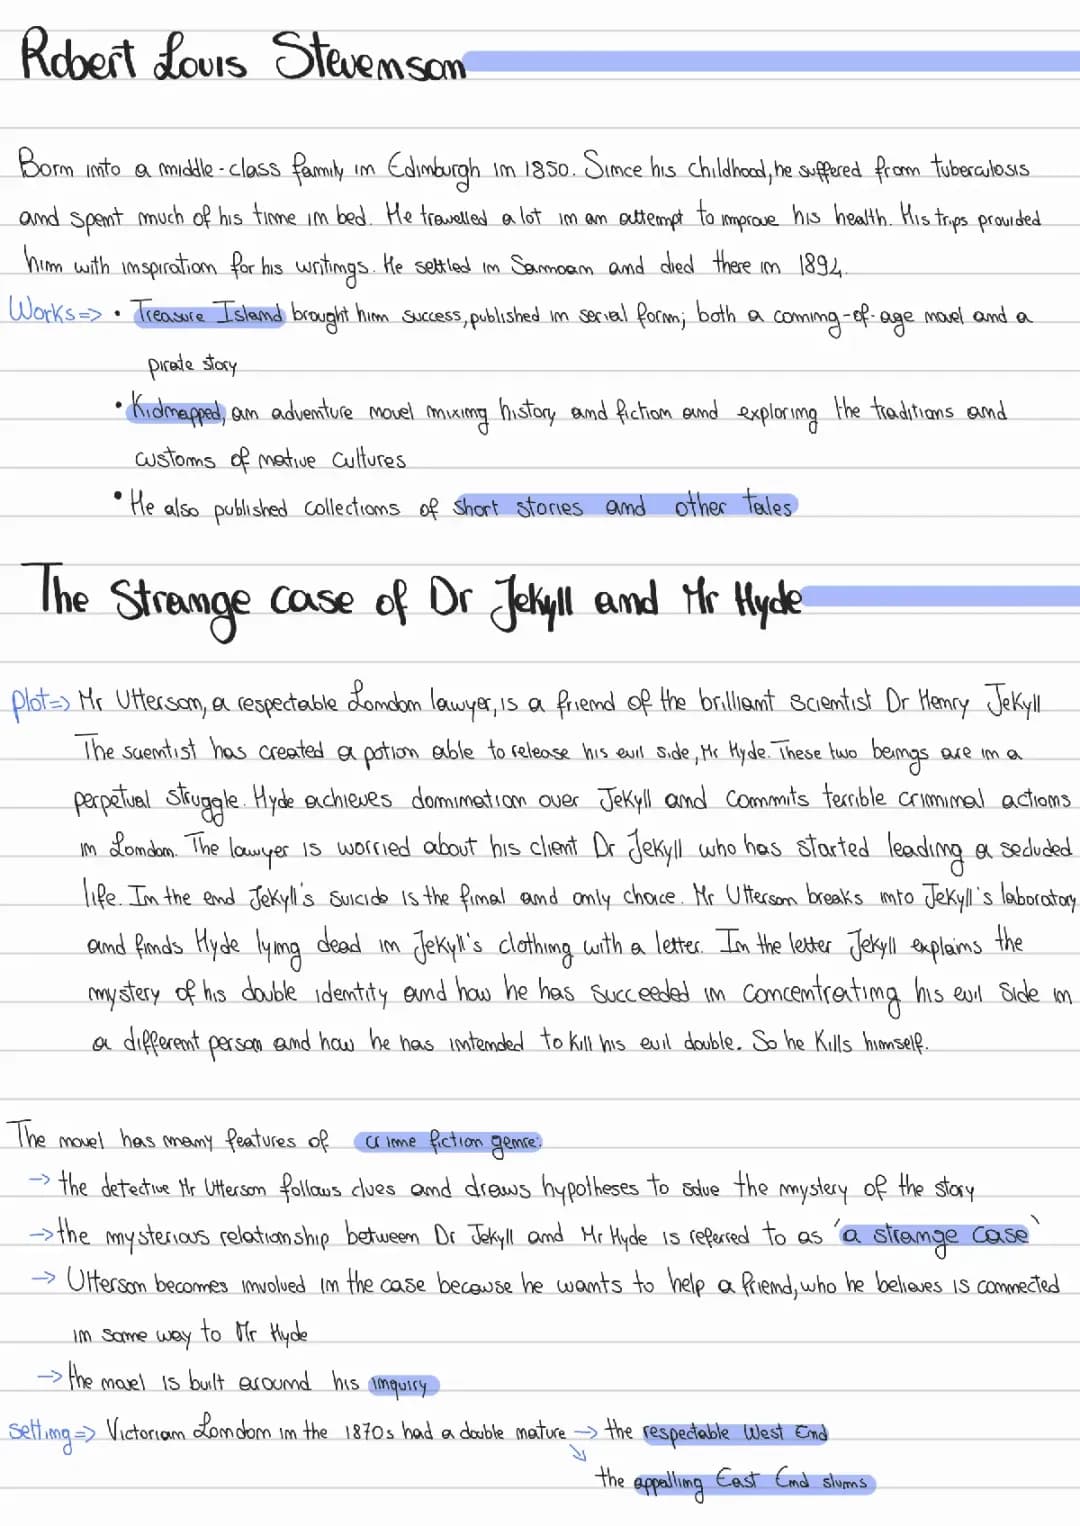 Robert Louis Stevenson
Born into a middle-class family in Edinburgh in 1850. Since his childhood, he suffered from tuberculosis
and spent much of his time in bed. He travelled a lot in an attempt to improve his health. His trips provided
him with inspiration for his writings. He settled in Samoan and died there in 1894.
Works => • Treasure Island brought him success, published in serial form; both a coming-of-age novel and a
pirate story
• Kidnapped, an adventure novel mixing history and fiction and exploring the traditions and
customs of native cultures
• He also published collections of short stories and other tales
The Strange case of Dr Jekyll and Mr Hyde
plot => Mr Utterson, a respectable London lawyer, is a friend of the brilliant scientist Dr Henry Jekyll
The scientist has created a potion able to release his evil side, Mr Hyde. These two beings are in a
perpetual struggle. Hyde achieves domination over Jekyll and commits terrible criminal actions
in London. The lawyer is worried about his client Dr Jekyll who has started leading a secluded
life. In the end Jekyll's suicide is the final and only choice. Mr Utterson breaks into Jekyll's laboratory
and finds Hyde lying dead in Jekyll's clothing with a letter. In the letter Jekyll explains the
mystery of his double identity and how he has succeeded in concentrating his evil side in
a different person and how he has intended to kill his evil double. So he kills himself.
The novel has many features of crime fiction genre:
-> the detective Mr Utterson follows clues and draws hypotheses to solve the mystery of the story
-> the mysterious relationship between Dr Jekyll and Mr Hyde is referred to as 'a strange case'
-> Utterson becomes involved in the case because he wants to help a friend, who he believes is connected
in some way to Mr Hyde
-> the novel is built around his inquiry
setting => Victorian London in the 1870s had a double nature -> the respectable West End
the appalling East End slums